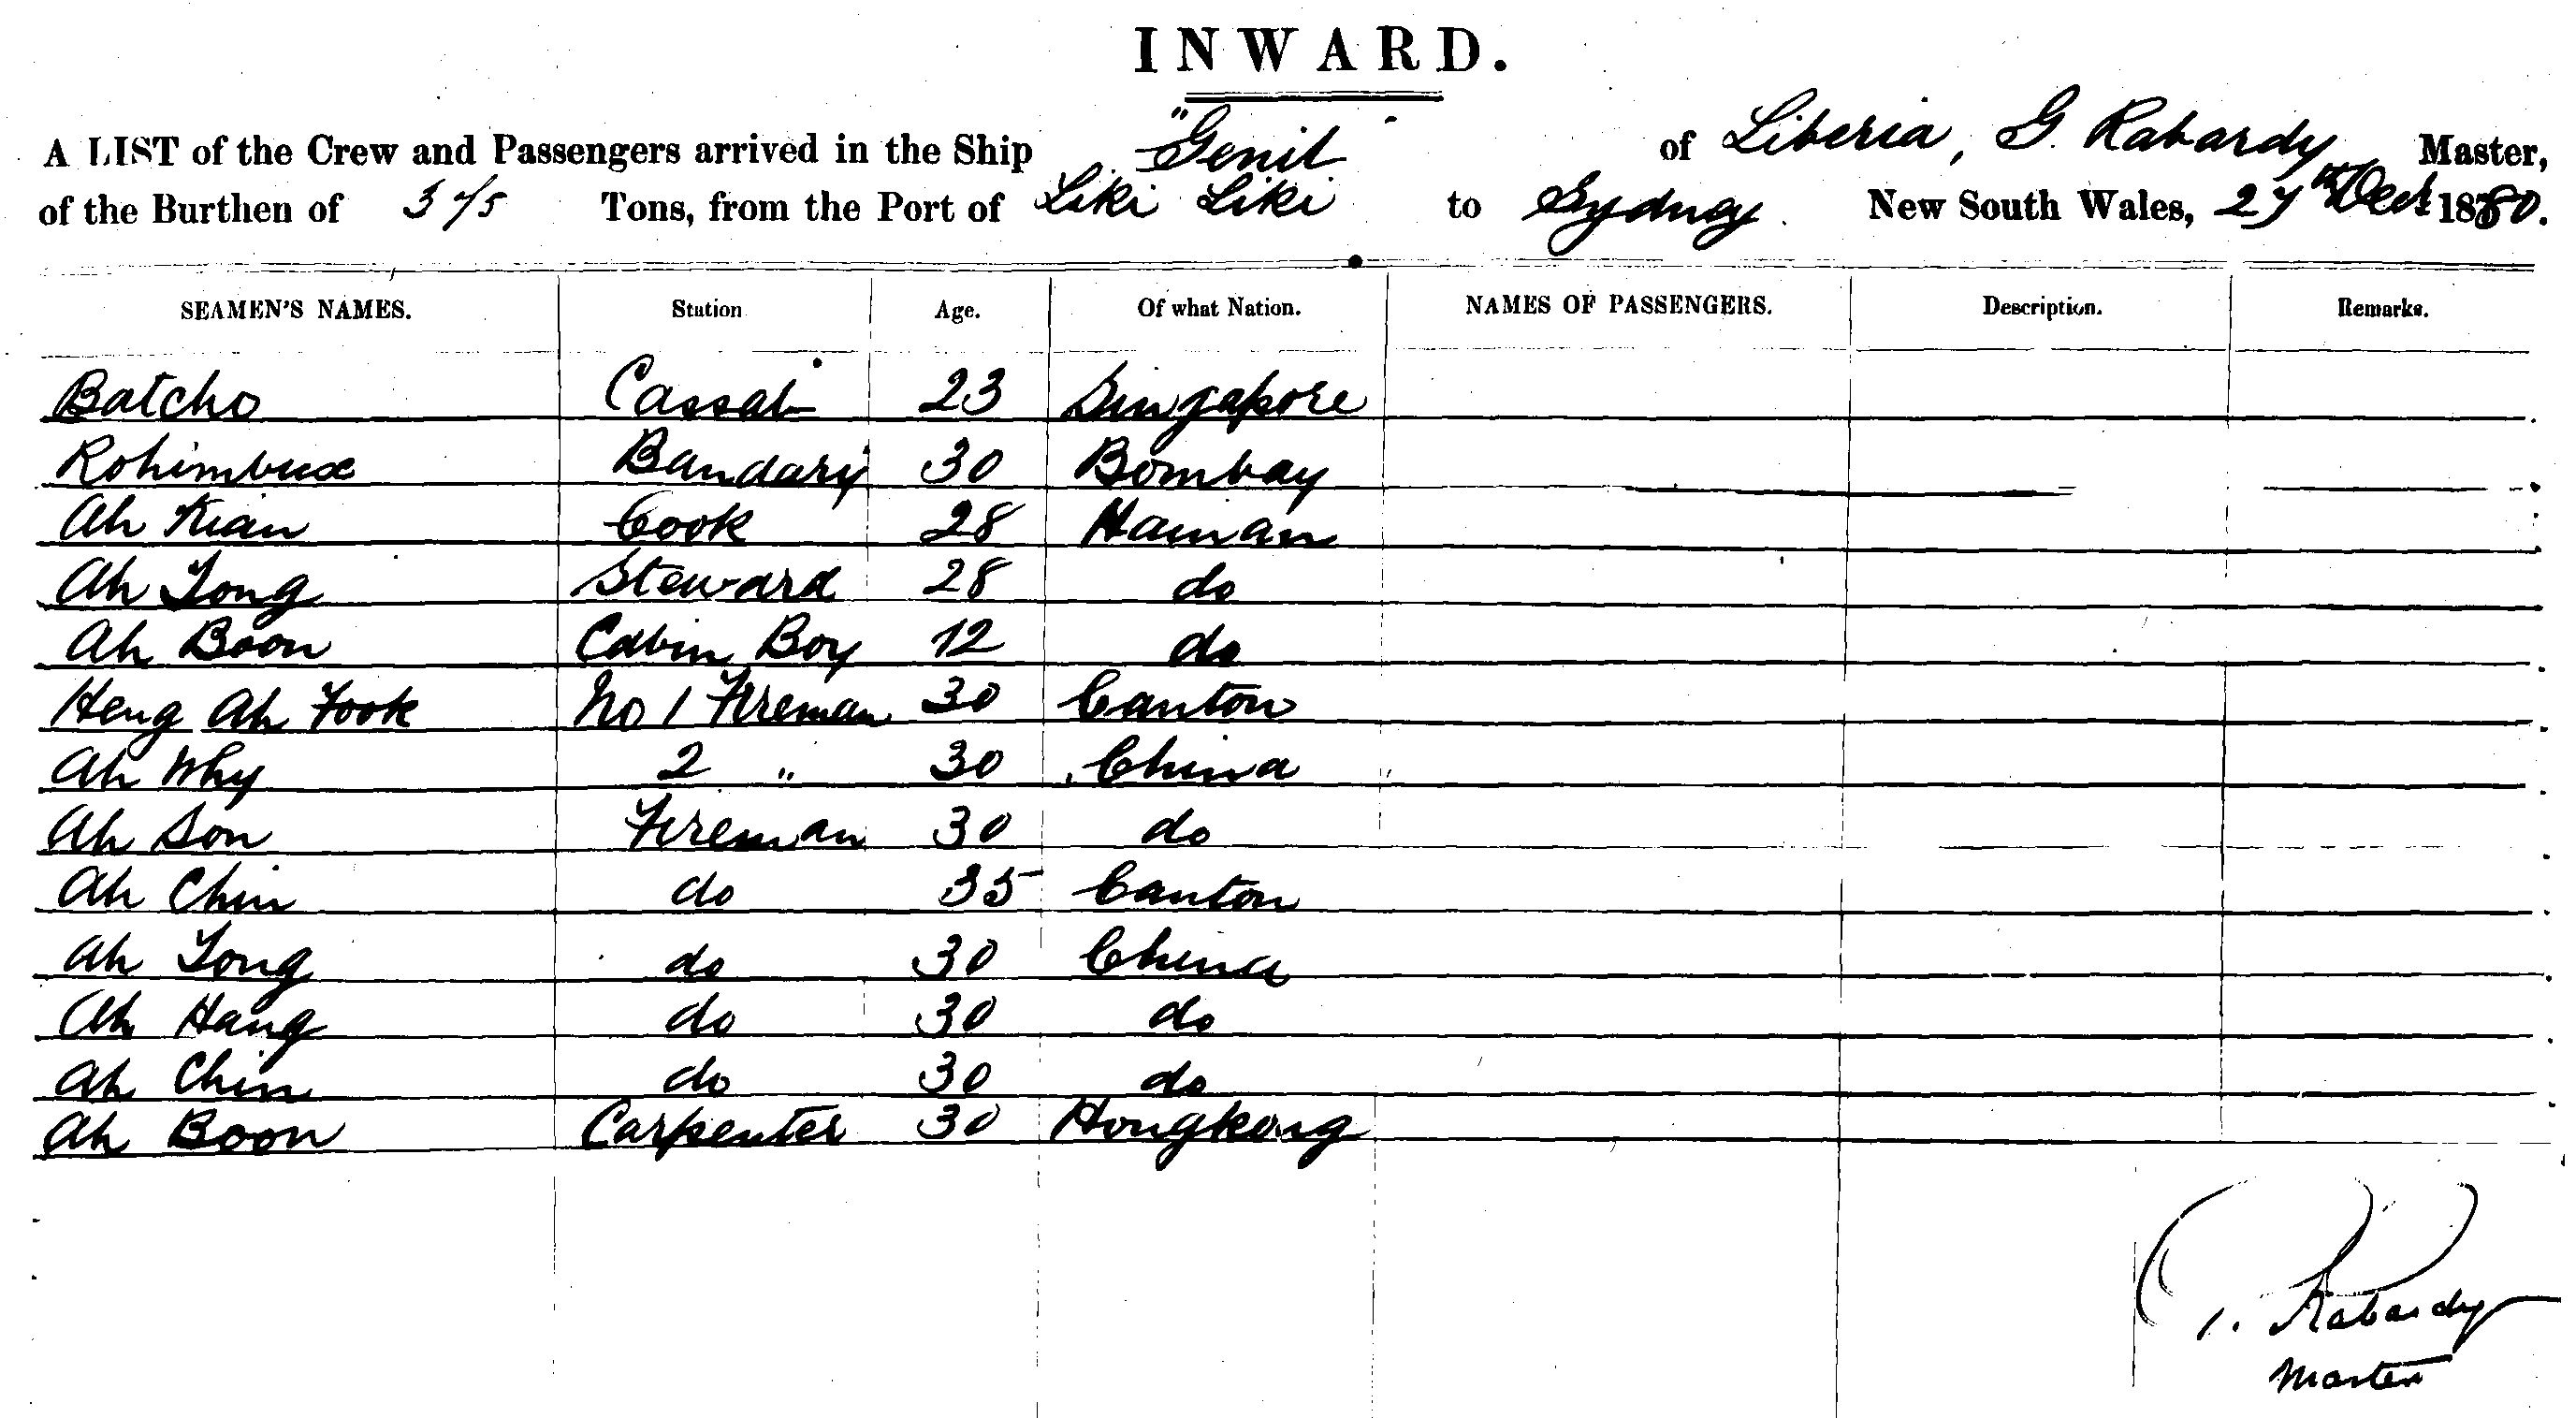 INWARD.
A LIST of the Crew and Passengers arrived in the Ship "Genil" of Liberia, G. Rabardy Master,
of the Burthen of Tons, from the Port of Liki Liki to Sydney New South Wales, 27th Decr 1880.
SEAMEN'S NAMES. Station Age. Of what Nation. NAMES OF PASSENGERS. Description. Remarks.
Batcho Cassab 23 Singapore
Rohimbux Bandary 30 Bombay
Ah Kian Cook 28 Hainan
Ah Tong Steward 28 do
Ah Boon Cabin Boy 12 do
Heng Ah Fook No 1 Fireman 30 Canton
Ah Why 2 " 30 China
Ah Son Fireman 30 do
Ah Chin do 35 Canton
Ah Tong do 30 China
Ah Hang do 30 do
Ah Chin do 30 do
Ah Boon Carpenter 30 Hongkong
Rabardy
Master